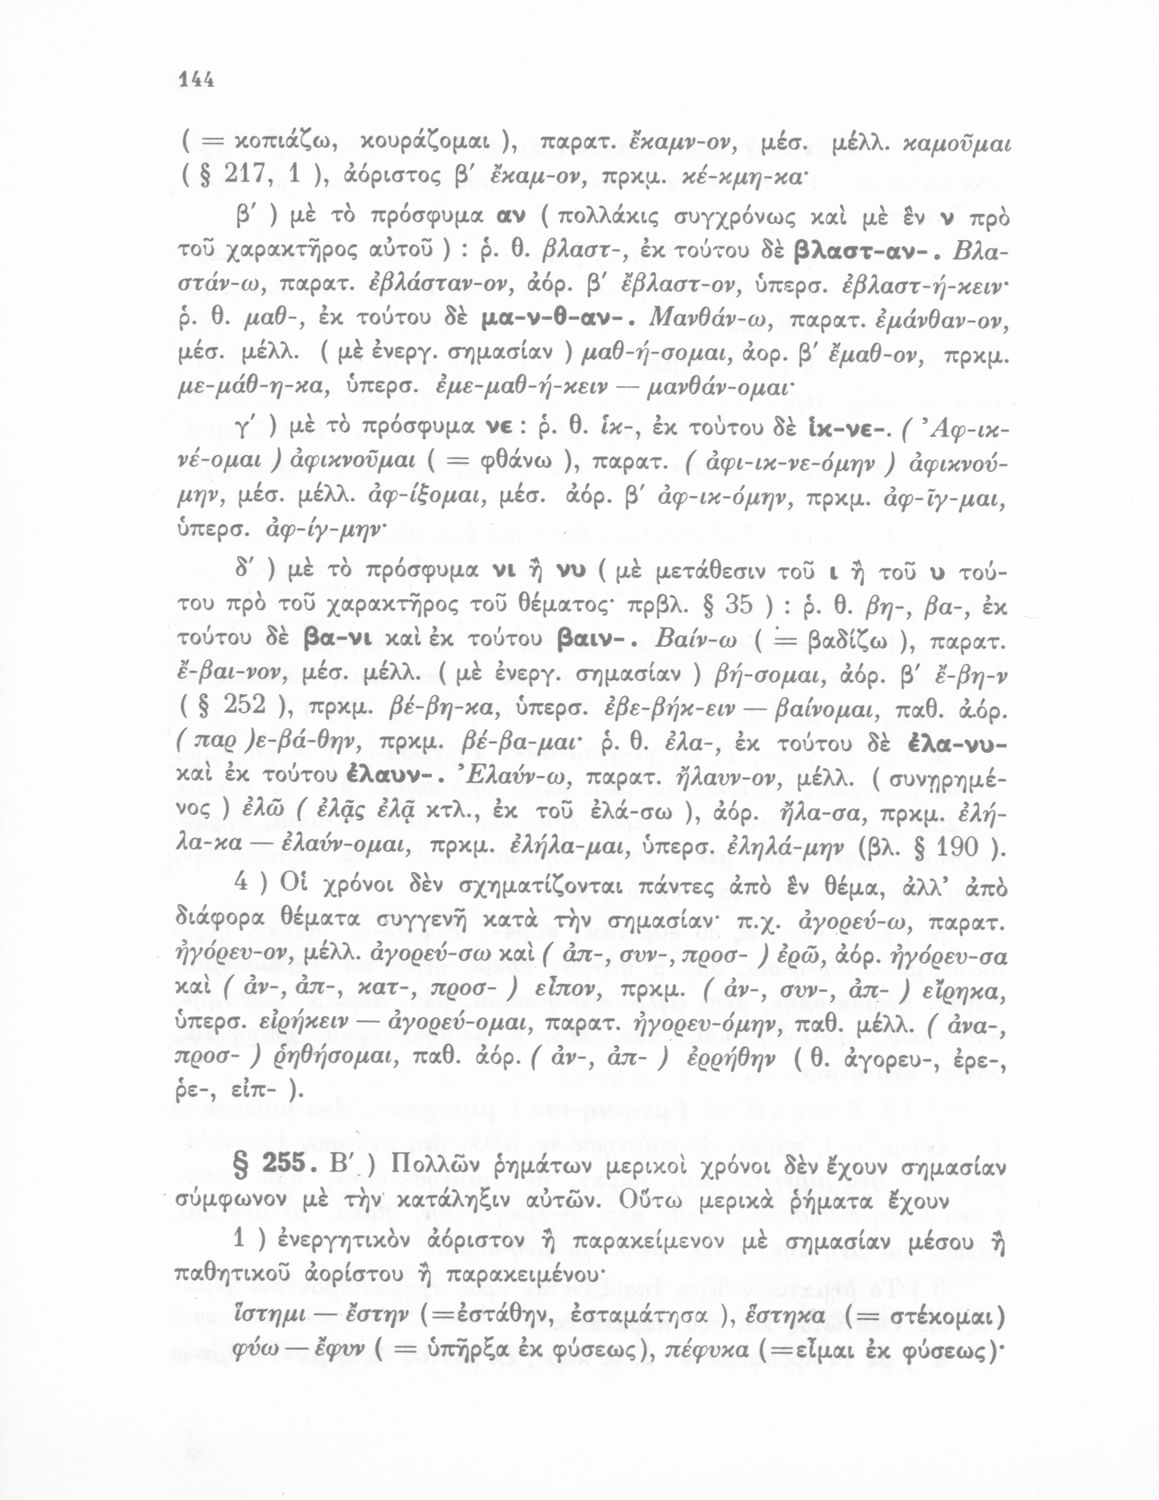 144
( = κοπιάζω, κουράζομαι ), παρατ. ἔκαμν-ον, μέσ. μέλλ. καμοῦμαι
( § 217, 1 ), ἀόριστος β′ ἔκαμ-ον, πρκμ. κέ-κμη-κα·
β′ ) μὲ τὸ πρόσφυμα αν ( πολλάκις συγχρόνως καὶ μὲ ἓν ν πρὸ
τοῦ χαρακτῆρος αὐτοῦ ) : ῥ. θ. βλαστ-, ἐκ τούτου δὲ βλαστ-αν-. Βλα-
στάν-ω, παρατ. ἐβλάσταν-ον, ἀόρ. β′ ἔβλαστ-ον, ὑπερσ. ἐβλαστ-ή-κειν·
ῥ. θ. μαθ-, ἐκ τούτου δὲ μα-ν-θ-αν-. Μανθάν-ω, παρατ. ἐμάνθαν-ον,
μέσ. μέλλ. ( μὲ ἐνεργ. σημασίαν ) μαθ-ή-σομαι, ἀορ. β′ ἔμαθ-ον, πρκμ.
με-μάθ-η-κα, ὑπερσ. ἐμε-μαθ-ή-κειν — μανθάν-ομαι·
γ′ ) μὲ τὸ πρόσφυμα νε : ῥ. θ. ἱκ-, ἐκ τούτου δὲ ἱκ-νε-. ( Ἀφ-ικ-
νέ-ομαι ) ἀφικνοῦμαι ( = φθάνω ), παρατ. ( ἀφι-ικ-νε-όμην ) ἀφικνού-
μην, μέσ. μέλλ. ἀφ-ίξομαι, μέσ. ἀόρ. β′ ἀφ-ικ-όμην, πρκμ. ἀφ-ῖγ-μαι,
ὑπερσ. ἀφ-ίγ-μην·
δ′ ) μὲ τὸ πρόσφυμα νι ἢ νυ ( μὲ μετάθεσιν τοῦ ι ἢ τοῦ υ τού-
του πρὸ τοῦ χαρακτῆρος τοῦ θέματος· πρβλ. § 35 ) : ῥ. θ. βη-, βα-, ἐκ
τούτου δὲ βα-νι καὶ ἐκ τούτου βαιν-. Βαίν-ω ( = βαδίζω ), παρατ.
ἔ-βαι-νον, μέσ. μέλλ. ( μὲ ἐνεργ. σημασίαν ) βή-σομαι, ἀόρ. β′ ἔ-βη-ν
( § 252 ), πρκμ. βέ-βη-κα, ὑπερσ. ἐβε-βήκ-ειν — βαίνομαι, παθ. ἀόρ.
( παρ )ε-βά-θην, πρκμ. βέ-βα-μαι· ῥ. θ. ἐλα-, ἐκ τούτου δὲ ἐλα-νυ-
καὶ ἐκ τούτου ἐλαυν-. Ἐλαύν-ω, παρατ. ἤλαυν-ον, μέλλ. ( συνῃρημέ-
νος ) ἐλῶ ( ἐλᾷς ἐλᾷ κτλ., ἐκ τοῦ ἐλά-σω ), ἀόρ. ἤλα-σα, πρκμ. ἐλή-
λα-κα — ἐλαύν-ομαι, πρκμ. ἐλήλα-μαι, ὑπερσ. ἐληλά-μην (βλ. § 190 ).
4 ) Οἱ χρόνοι δὲν σχηματίζονται πάντες ἀπὸ ἓν θέμα, ἀλλ’ ἀπὸ
διάφορα θέματα συγγενῆ κατὰ τὴν σημασίαν· π.χ. ἀγορεύ-ω, παρατ.
ἠγόρευ-ον, μέλλ. ἀγορεύ-σω καὶ ( ἀπ-, συν-, προσ- ) ἐρῶ, ἀόρ. ἠγόρευ-σα
καὶ ( ἀν-, ἀπ-, κατ-, προσ- ) εἶπον, πρκμ. ( ἀν-, συν-, ἀπ- ) εἴρηκα,
ὑπερσ. εἰρήκειν — ἀγορεύ-ομαι, παρατ. ἠγορευ-όμην, παθ. μέλλ. ( ἀνα-,
προσ- ) ῥηθήσομαι, παθ. ἀόρ. ( ἀν-, ἀπ- ) ἐρρήθην ( θ. ἀγορευ-, ἐρε-,
ῥε-, εἰπ- ).
§ 255. Β′ ) Πολλῶν ῥημάτων μερικοὶ χρόνοι δὲν ἔχουν σημασίαν
σύμφωνον μὲ τὴν κατάληξιν αὐτῶν. Οὕτω μερικὰ ῥήματα ἔχουν
1 ) ἐνεργητικὸν ἀόριστον ἢ παρακείμενον μὲ σημασίαν μέσου ἢ
παθητικοῦ ἀορίστου ἢ παρακειμένου·
ἵστημι — ἔστην (=ἐστάθην, ἐσταμάτησα ), ἕστηκα (= στέκομαι)
φύω — ἔφυν ( = ὑπῆρξα ἐκ φύσεως), πέφυκα (=εἶμαι ἐκ φύσεως)·